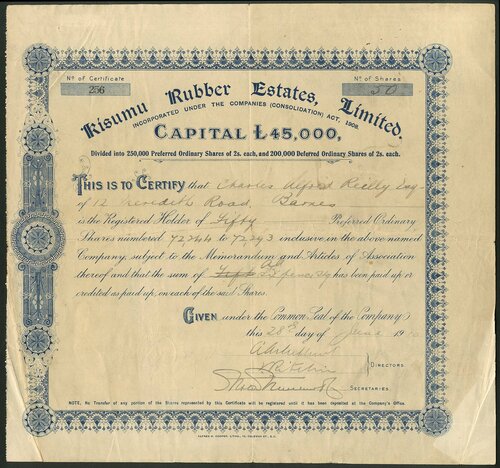 No of Certificate
256
No of Shares
50
Kisumu Rubber Estates, Limited.
INCORPORATED UNDER THE COMPANIES (CONSOLIDATION) ACT, 1908.
CAPITAL £45,000,
Divided into 250,000 Preferred Ordinary Shares of 2s. each, and 200,000 Deferred Ordinary Shares of 2s. each.
THIS IS TO CERTIFY that Charles Alfred Reilly Esq
of 12 Meredith Road, Barnes
is the Registered Holder of Fifty Preferred Ordinary
Shares numbered 72244 to 72293 inclusive in the above named
Company, subject to the Memorandum and Articles of Association
thereof and that the sum of has been paid up or
credited as paid up, on each of the said Shares.
GIVEN under the Common Seal of the Company
this 28th day of June 19
DIRECTORS.
SECRETARIES.
NOTE, No Transfer of any portion of the Shares represented by this Certificate will be registered until it has been deposited at the Company's Office.